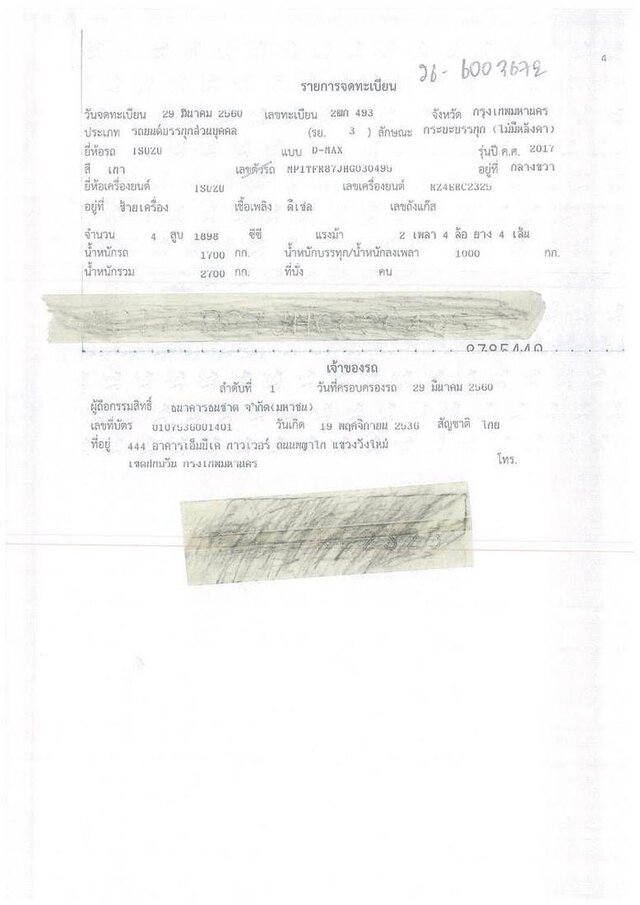 26-6003672
4
รายการจดทะเบียน
วันจดทะเบียน 29 มีนาคม 2560 เลขทะเบียน 2ฒก 493 จังหวัด กรุงเทพมหานคร
ประเภท รถยนต์บรรทุกส่วนบุคคล (รย. 3 ) ลักษณะ กระบะบรรทุก (ไม่มีหลังคา)
ยี่ห้อรถ ISUZU แบบ D-MAX รุ่นปี ค.ศ. 2017
สี เทา เลขตัวรถ MP1TFR87JHG030495 อยู่ที่ กลางขวา
ยี่ห้อเครื่องยนต์ ISUZU เลขเครื่องยนต์ RZ4ERC2325
อยู่ที่ ซ้ายเครื่อง เชื้อเพลิง ดีเซล เลขถังแก๊ส
จำนวน 4 สูบ 1898 ซีซี แรงม้า 2 เพลา 4 ล้อ ยาง 4 เส้น
น้ำหนักรถ 1700 กก. น้ำหนักบรรทุก/น้ำหนักลงเพลา 1000 กก.
น้ำหนักรวม 2700 กก. ที่นั่ง คน
8785440
เจ้าของรถ
ลำดับที่ 1 วันที่ครอบครองรถ 29 มีนาคม 2560
ผู้ถือกรรมสิทธิ์ ธนาคารธนชาต จำกัด(มหาชน)
เลขที่บัตร 0107536001401 วันเกิด 19 พฤศจิกายน 2536 สัญชาติ ไทย
ที่อยู่ 444 อาคารเอ็มบีเค ทาวเวอร์ ถนนพญาไท แขวงวังใหม่
เขตปทุมวัน กรุงเทพมหานคร โทร.